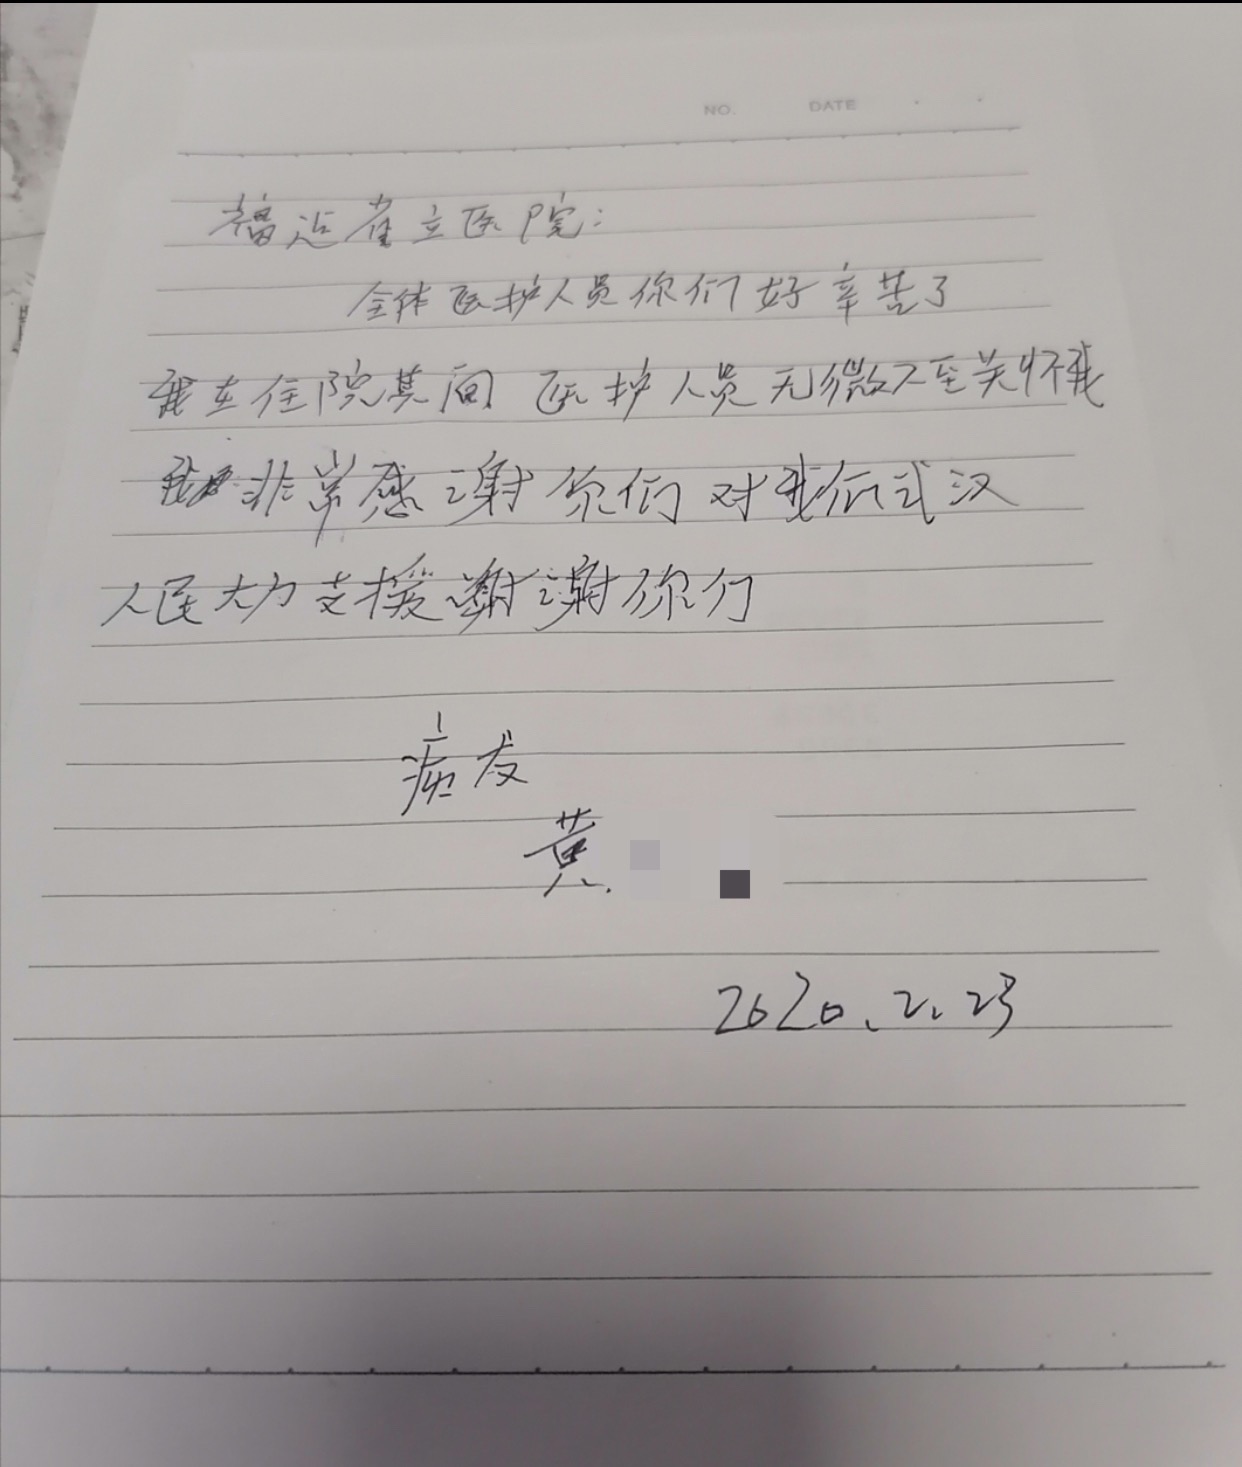 NO. DATE
福远省立医院:
全体医护人员你们好辛苦了
我在住院其间 医护人员无微不至关怀我
非常感谢你们对我们武汉
人民大力支援谢谢你们
病友
黄
2020.2.23